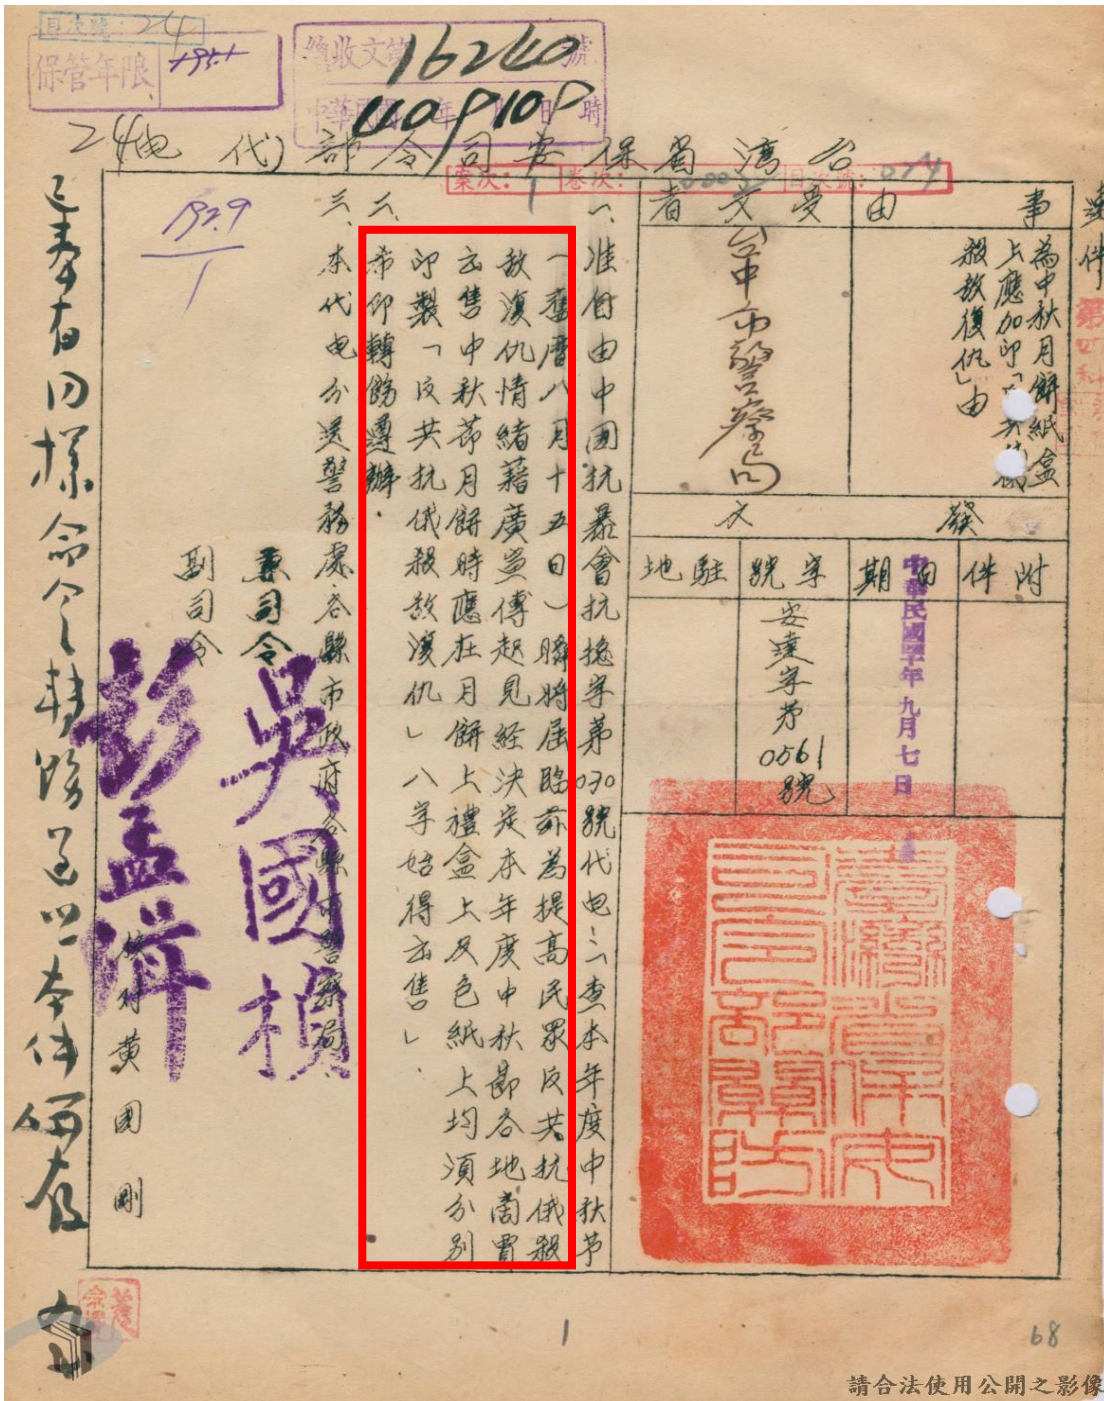 目次號：24
保管年限
1951
總收文第16240號
中華民國40年9月10日 時
24
台灣省保安司令部(代電)
案次： 1 卷次： 目次號：024
速件
事由
為中秋月餅紙盒
上應加印「反共抗俄
殺敵復仇」由
受文者
台中市警察局
發文
附件
日期
中華民國四十年九月七日
字號
安達字第
0561
號
駐地
臺灣省保安
司令部關防
一、准自由中國抗暴會抗總字第030號代电：「查本年度中秋节
(舊曆八月十五日)瞬將屆臨茲為提高民眾反共抗俄殺
敵復仇情緒藉廣宣傳起見経決定本年度中秋節各地商買
出售中秋节月餅時應在月餅上禮盒上及色紙上均須分別
印製「反共抗俄殺敵復仇」八字始得出售」.
二、希即轉飭遵辦.
三、本代电分送警務處各縣市政府各縣市警察局.
兼司令
吳國楨
副司令
彭孟緝
校對黃國剛
1929
1
1
68
請合法使用公開之影像